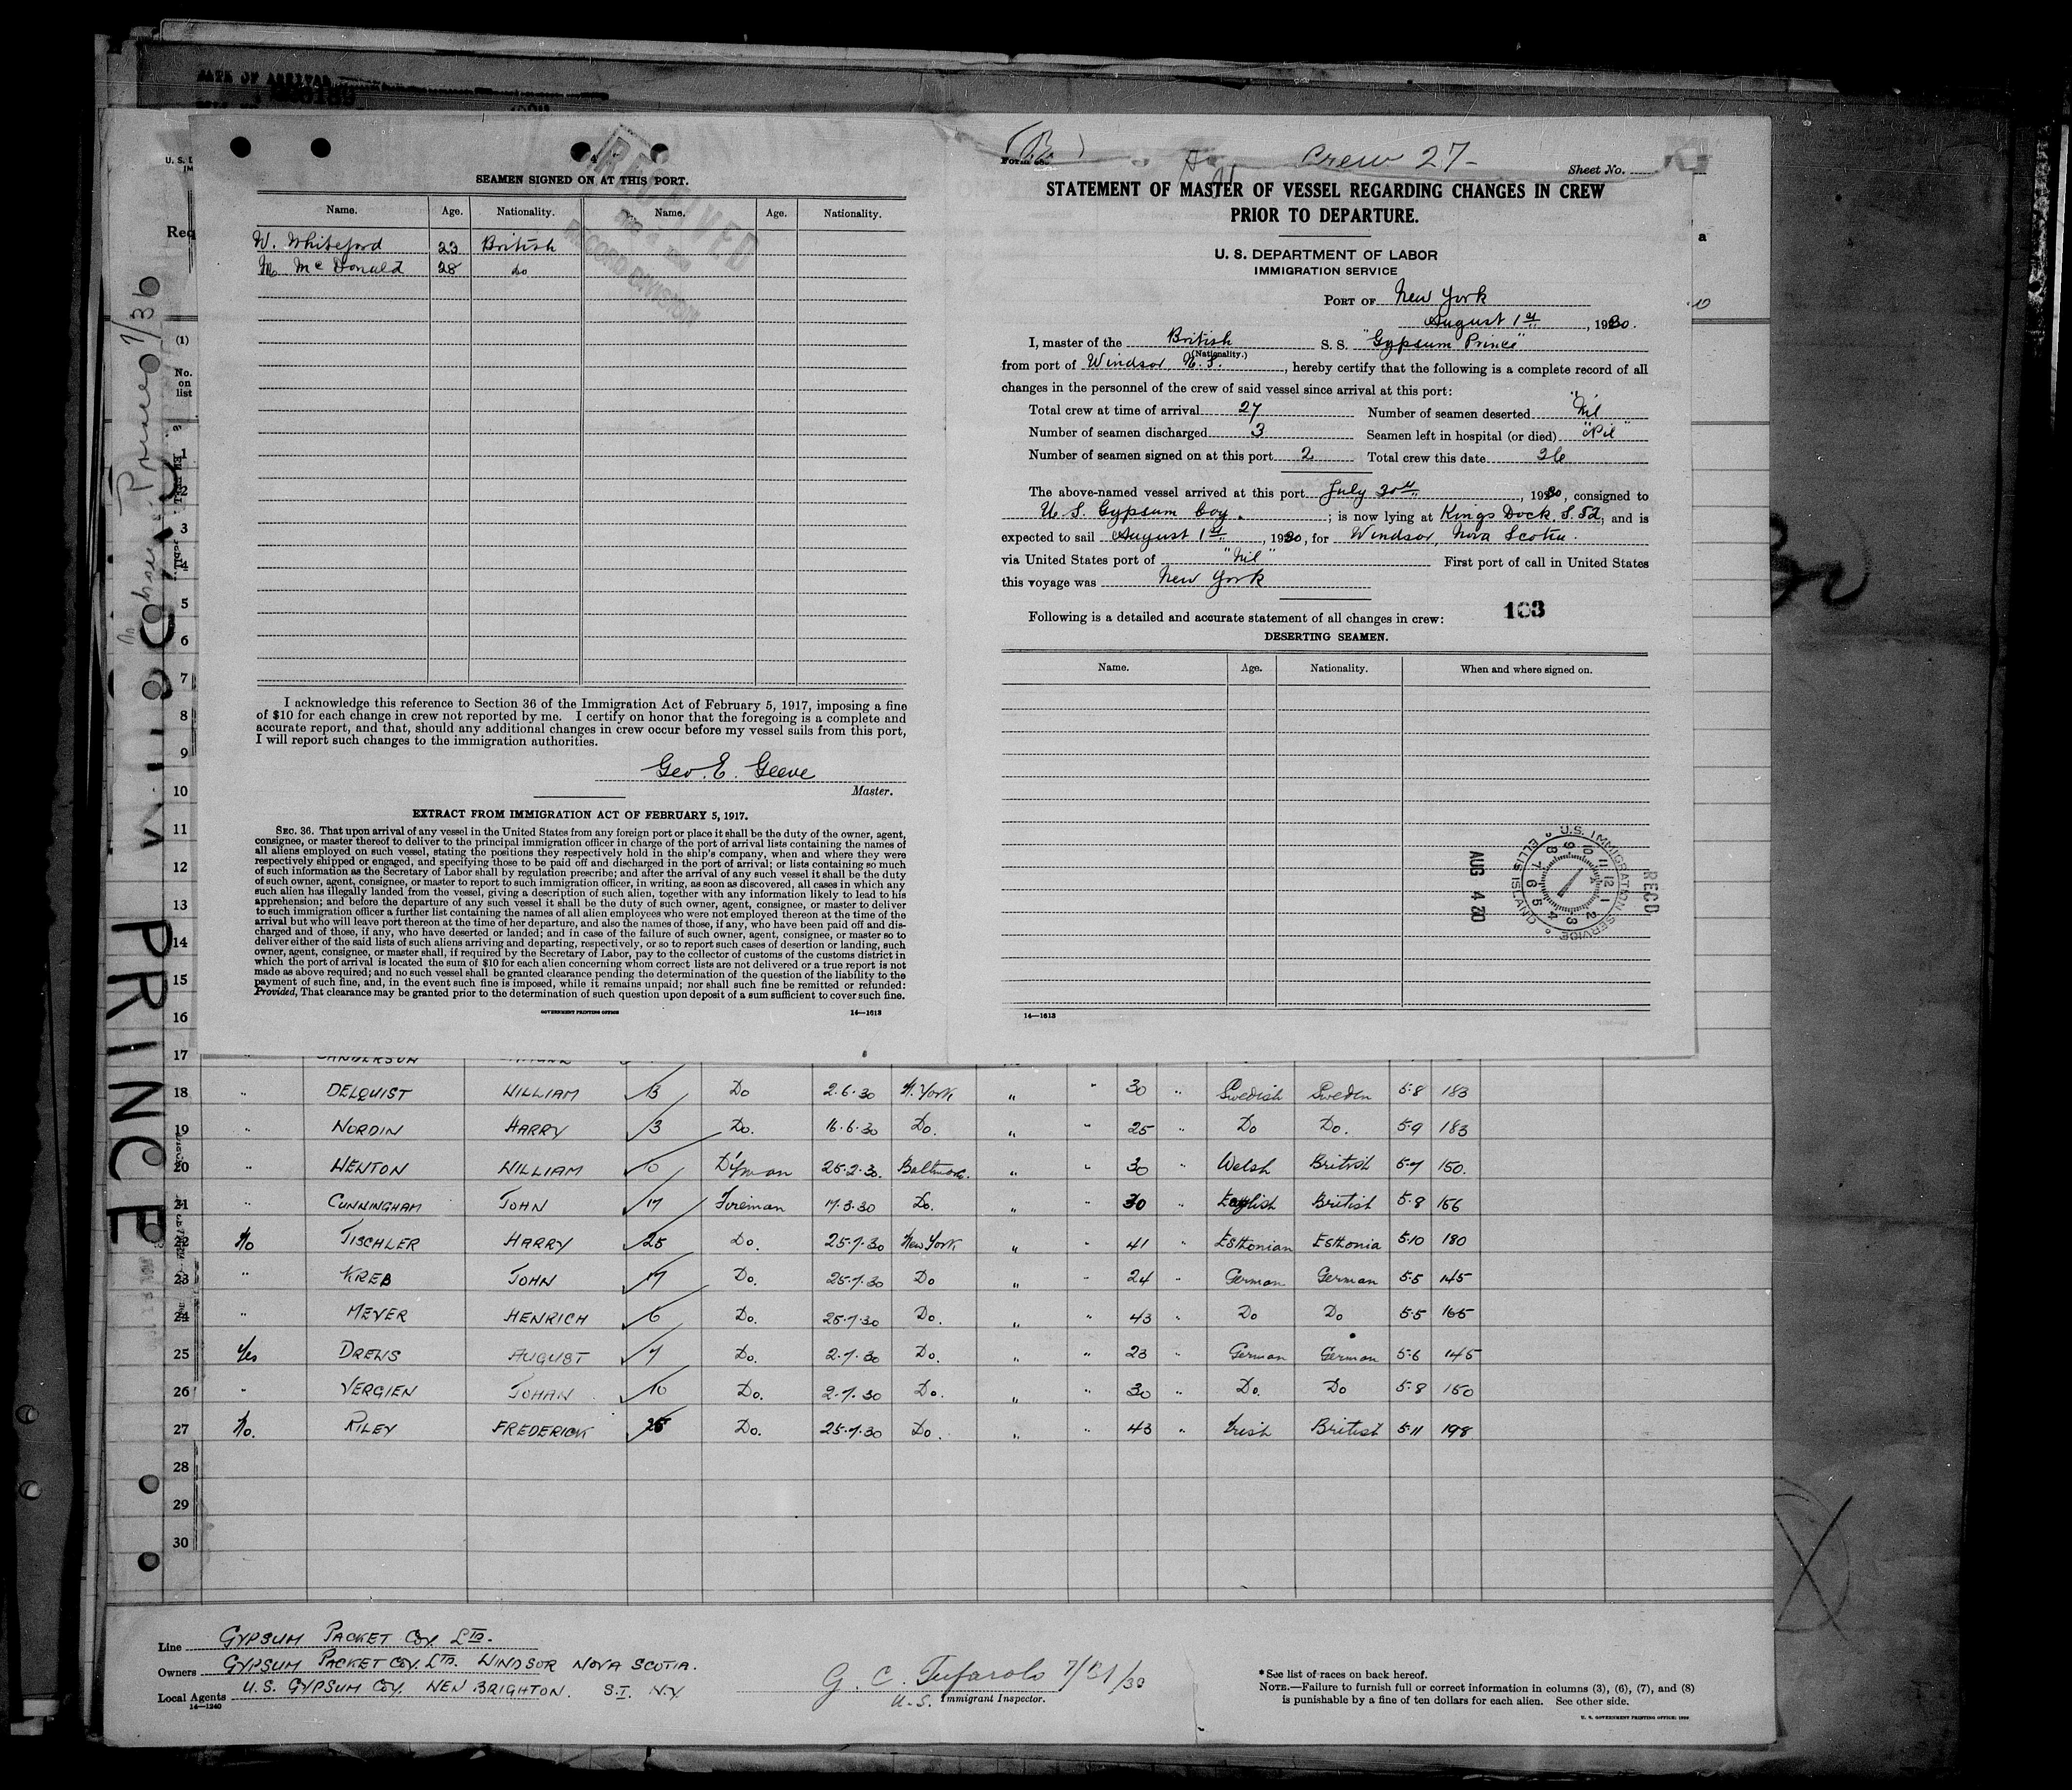 DATE OF ARRIVAL
SEAMEN SIGNED ON AT THIS PORT.
Name. Age. Nationality. Name. Age. Nationality.
W. Whiteford 23 British
M. McDonald 28 do
RECEIVED
RECORD DIVISION
I acknowledge this reference to Section 36 of the Immigration Act of February 5, 1917, imposing a fine
of $10 for each change in crew not reported by me. I certify on honor that the foregoing is a complete and
accurate report, and that, should any additional changes in crew occur before my vessel sails from this port,
I will report such changes to the immigration authorities.
Geo. E. Geeve
Master.
EXTRACT FROM IMMIGRATION ACT OF FEBRUARY 5, 1917.
SEC. 36. That upon arrival of any vessel in the United States from any foreign port or place it shall be the duty of the owner, agent,
consignee, or master thereof to deliver to the principal immigration officer in charge of the port of arrival lists containing the names of
all aliens employed on such vessel, stating the positions they respectively hold in the ship's company, when and where they were
respectively shipped or engaged, and specifying those to be paid off and discharged in the port of arrival; or lists containing so much
of such information as the Secretary of Labor shall by regulation prescribe; and after the arrival of any such vessel it shall be the duty
of such owner, agent, consignee, or master to report to such immigration officer, in writing, as soon as discovered, all cases in which any
such alien has illegally landed from the vessel, giving a description of such alien, together with any information likely to lead to his
apprehension; and before the departure of any such vessel it shall be the duty of such owner, agent, consignee, or master to deliver
to such immigration officer a further list containing the names of all alien employees who were not employed thereon at the time of the
arrival but who will leave port thereon at the time of her departure, and also the names of those, if any, who have been paid off and dis-
charged and of those, if any, who have deserted or landed; and in case of the failure of such owner, agent, consignee, or master so to
deliver either of the said lists of such aliens arriving and departing, respectively, or so to report such cases of desertion or landing, such
owner, agent, consignee, or master shall, if required by the Secretary of Labor, pay to the collector of customs of the customs district in
which the port of arrival is located the sum of $10 for each alien concerning whom correct lists are not delivered or a true report is not
made as above required; and no such vessel shall be granted clearance pending the determination of the question of the liability to the
payment of such fine, and, in the event such fine is imposed, while it remains unpaid; nor shall such fine be remitted or refunded:
Provided, That clearance may be granted prior to the determination of such question upon deposit of a sum sufficient to cover such fine.
GOVERNMENT PRINTING OFFICE 14—1613
Crew 27-
Sheet No.
STATEMENT OF MASTER OF VESSEL REGARDING CHANGES IN CREW
PRIOR TO DEPARTURE.
U. S. DEPARTMENT OF LABOR
IMMIGRATION SERVICE
PORT OF New York
August 1st, 1930.
I, master of the British S. S. "Gypsum Prince"
(Nationality.)
from port of Windsor, N.S., hereby certify that the following is a complete record of all
changes in the personnel of the crew of said vessel since arrival at this port:
Total crew at time of arrival 27 Number of seamen deserted "Nil
Number of seamen discharged 3 Seamen left in hospital (or died) "Nil"
Number of seamen signed on at this port 2 Total crew this date 26
The above-named vessel arrived at this port July 30th, 1930, consigned to
U.S. Gypsum Coy.; is now lying at Kings Dock. S.Sd, and is
expected to sail August 1st, 1930, for Windsor, Nova Scotia.
via United States port of "Nil" First port of call in United States
this voyage was New York
Following is a detailed and accurate statement of all changes in crew:
103
DESERTING SEAMEN.
Name. Age. Nationality. When and where signed on.
RECD
U.S. IMMIGRATION SERVICE
ELLIS ISLAND
AUG 4
14—1613
PRINCE
(1)
No.
on
list
1
2
3
4
5
6
7
8
9
10
11
12
13
14
15
16
17
18 " DELQUIST WILLIAM 13 Do 2.6.30 N.York " " 30 " Swedish Sweden 5.8 183
19 " NORDIN HARRY 3 Do. 16.6.30 Do. " " 25 " Do Do. 5.9 183
20 " HENTON WILLIAM 10 D'kman 25.2.30. Baltimore. " " 30 " Welsh British 5.7 150.
21 " CUNNINGHAM JOHN 17 Fireman 17.3.30 Do. " " 30 " English British 5.8 156
22 No TISCHLER HARRY 25 Do. 25.7.30 New York " " 41 " Esthonian Esthonia 5.10 180
23 " KREB JOHN 17 Do. 25.7.30 Do " " 24 " German German 5.5 145
24 " MEYER HENRICH 6 Do. 25.7.30 Do. " " 43 " Do Do 5.5 165
25 Yes DREWS AUGUST 7 Do. 2.7.30 Do. " " 23 " German German 5.6 145
26 " VERGIEN JOHAN 10 Do. 2.7.30 Do. " " 30 " Do. Do 5.8 150
27 No. RILEY FREDERICK 25 Do. 25.7.30 Do. " " 43 " Irish British 5.11 198
28
29
30
Line GYPSUM PACKET COY. LTD.
Owners GYPSUM PACKET COY. LTD. WINDSOR NOVA SCOTIA.
Local Agents U.S. GYPSUM COY. NEW BRIGHTON. S.I. N.Y.
14—1240
G. C. Tufarolo 7/31/30
U.S. Immigrant Inspector.
*See list of races on back hereof.
NOTE.—Failure to furnish full or correct information in columns (3), (6), (7), and (8)
is punishable by a fine of ten dollars for each alien. See other side.